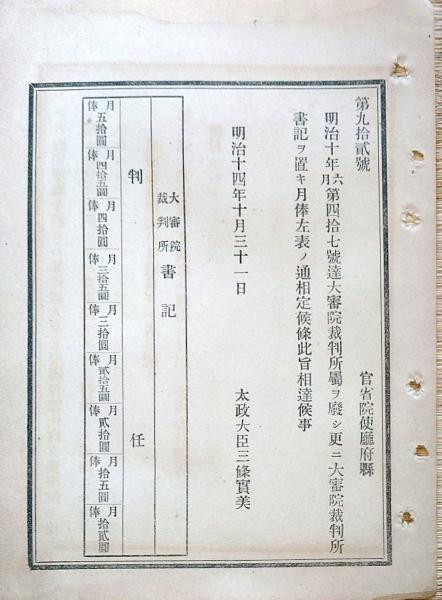 第九拾貳號
官省院使廳府縣
明治十年六月第四拾七號達大審院裁判所屬ヲ廢シ更ニ大審院裁判所
書記ヲ置キ月俸左表ノ通相定候條此旨相達候事
明治十四年十月三十一日
太政大臣三條實美
大審院
裁判所
書記
判任
月俸五拾圓
月俸四拾五圓
月俸四拾圓
月俸三拾五圓
月俸三拾圓
月俸貳拾五圓
月俸貳拾圓
月俸拾五圓
月俸拾貳圓